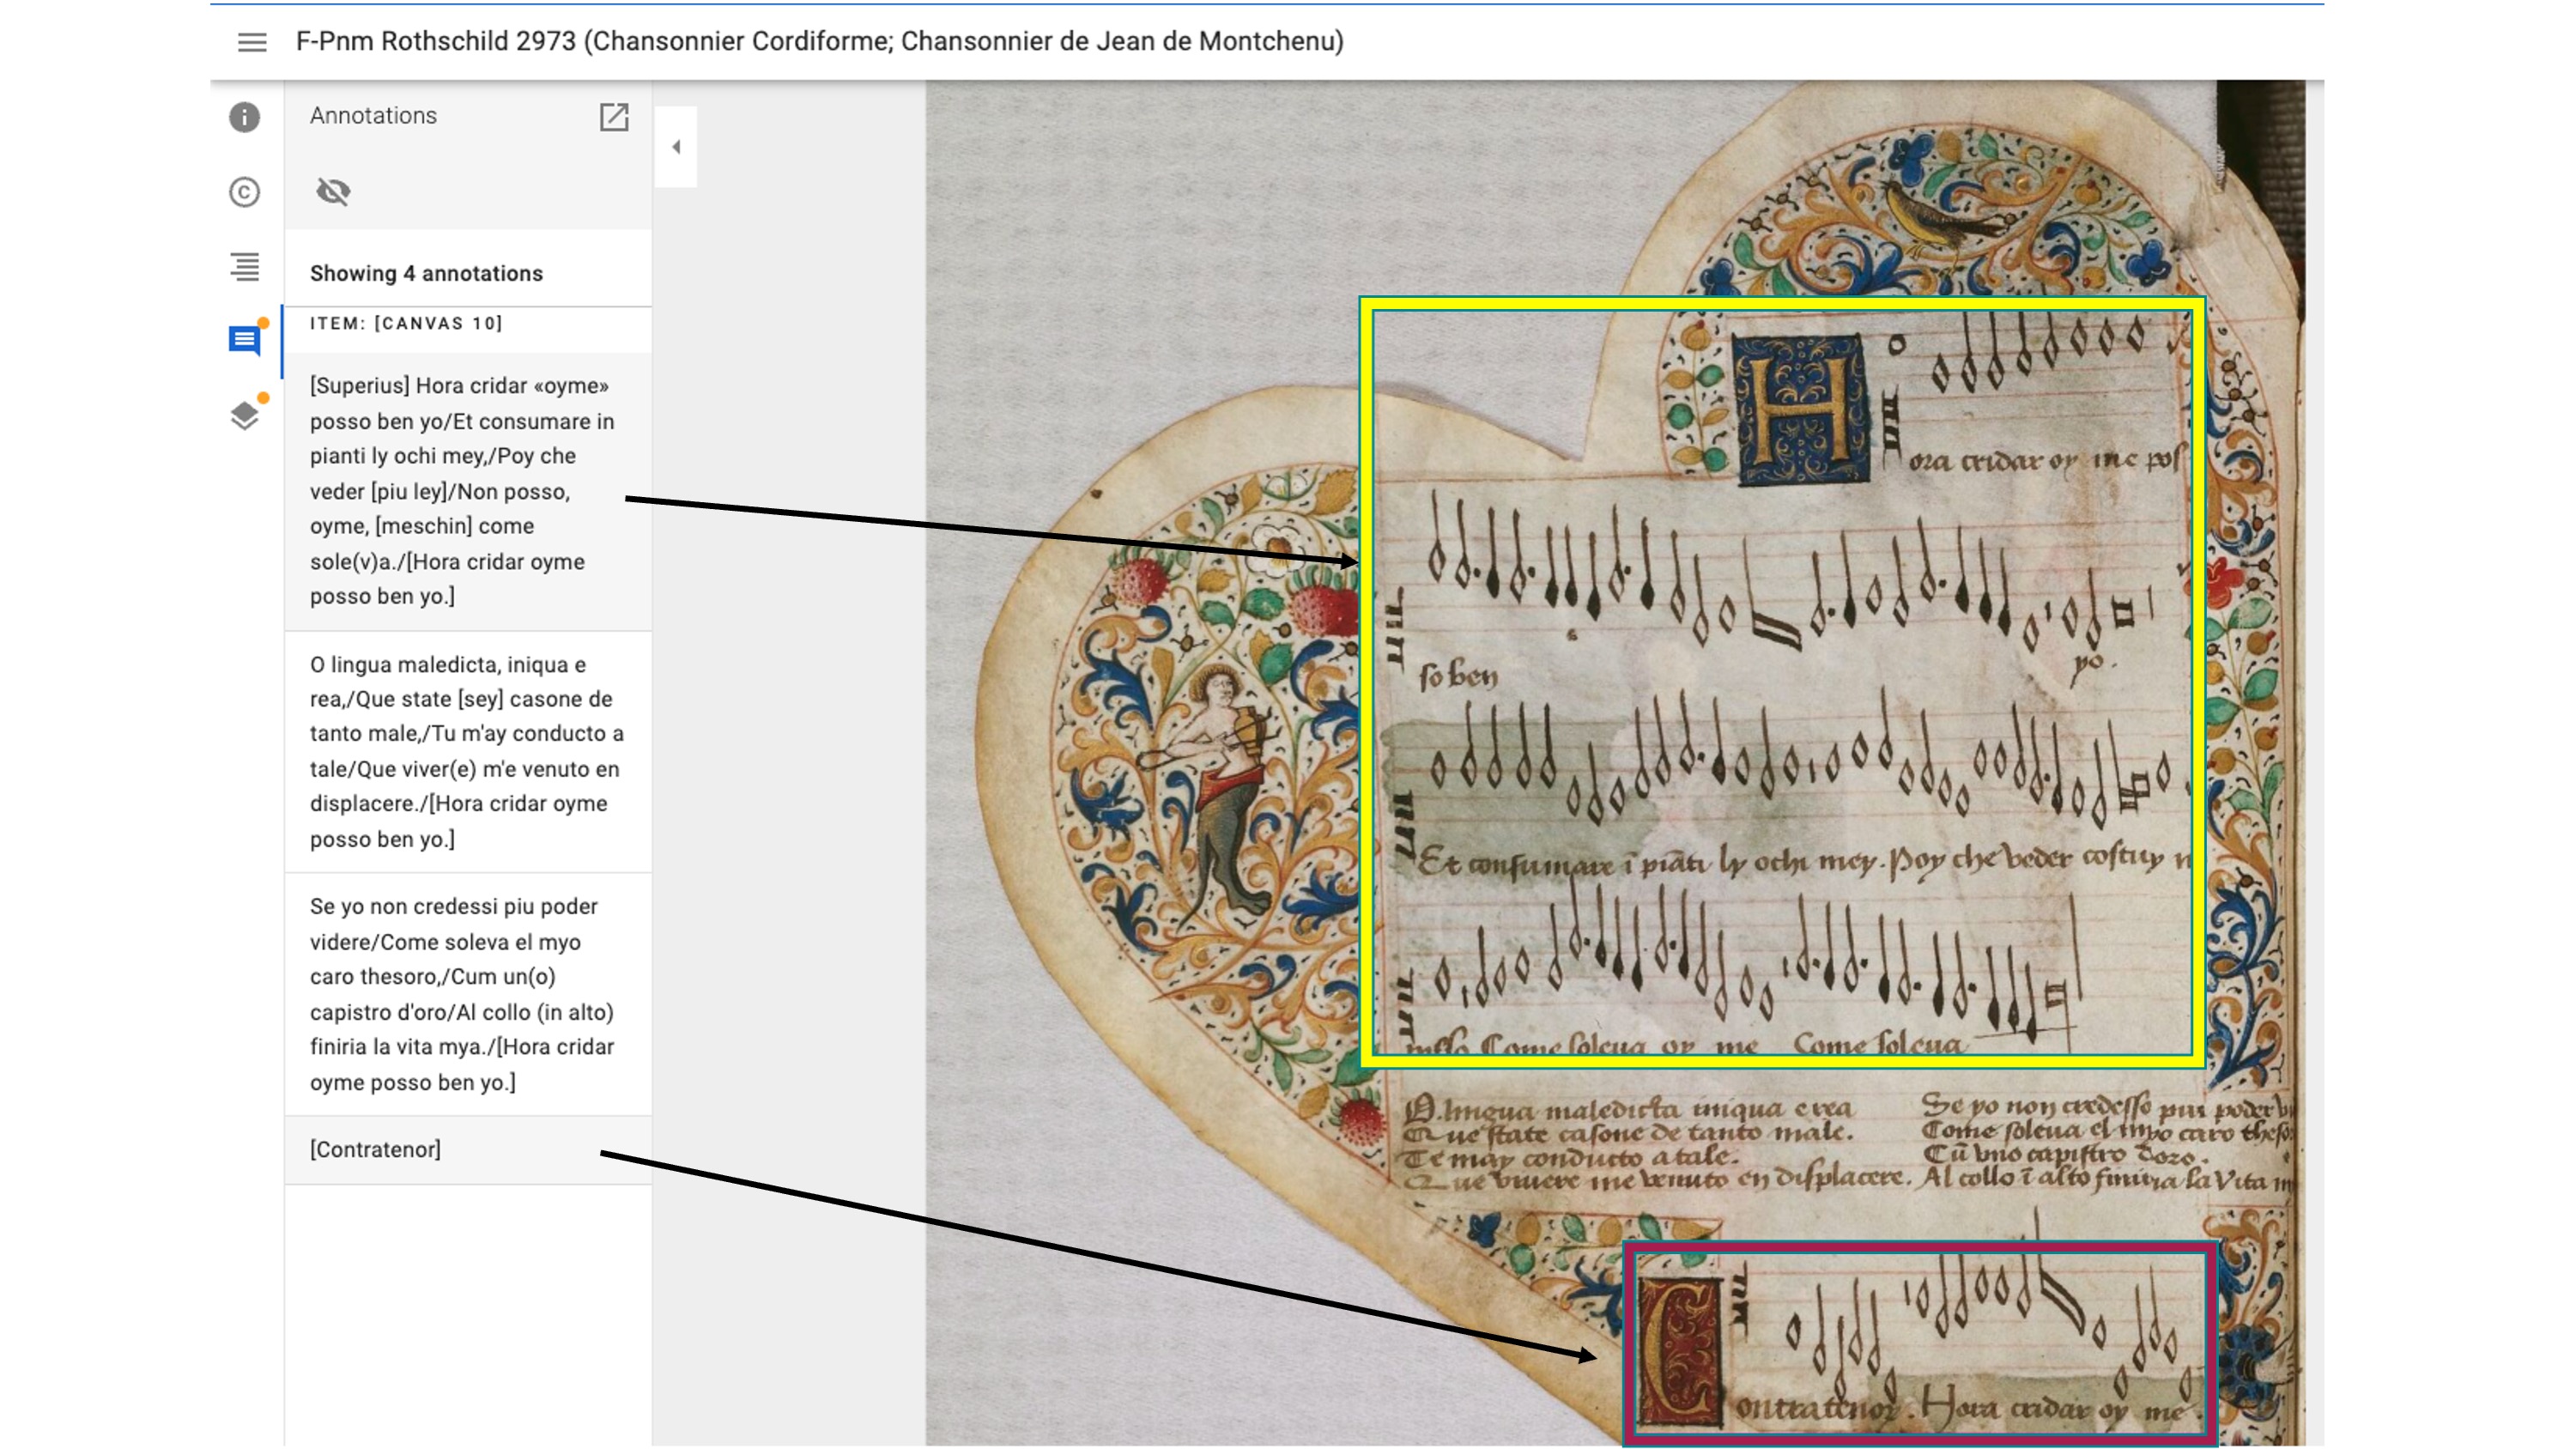 F-Pnm Rothschild 2973 (Chansonnier Cordiforme; Chansonnier de Jean de Montchenu)
Annotations
Showing 4 annotations
ITEM: [CANVAS 10]
[Superius] Hora cridar «oyme»
posso ben yo/Et consumare in
pianti ly ochi mey,/Poy che
veder [piu ley]/Non posso,
oyme, [meschin] come
sole(v)a./[Hora cridar oyme
posso ben yo.]
O lingua maledicta, iniqua e
rea,/Que state [sey] casone de
tanto male,/Tu m'ay conducto a
tale/Que viver(e) m'e venuto en
displacere./[Hora cridar oyme
posso ben yo.]
Se yo non credessi piu poder
videre/Come soleva el myo
caro thesoro,/Cum un(o)
capistro d'oro/Al collo (in alto)
finiria la vita mya./[Hora cridar
oyme posso ben yo.]
[Contratenor]
Hora cridar oy me pos
so ben yo.
Et consumare ī piāti ly ochi mey. Poy che veder costuy
Come soleua oy me Come soleua
O. lingua maledicta iniqua e rea
Que state casone de tanto male.
Te may conducto a tale.
Que viuere me venuto en displacere.
Se yo non credesse piu poder
Come soleua el myo caro
Cū vno capistro doro.
Al collo ī alto finiria la vita
Contratenor. Hora cridar oy me.